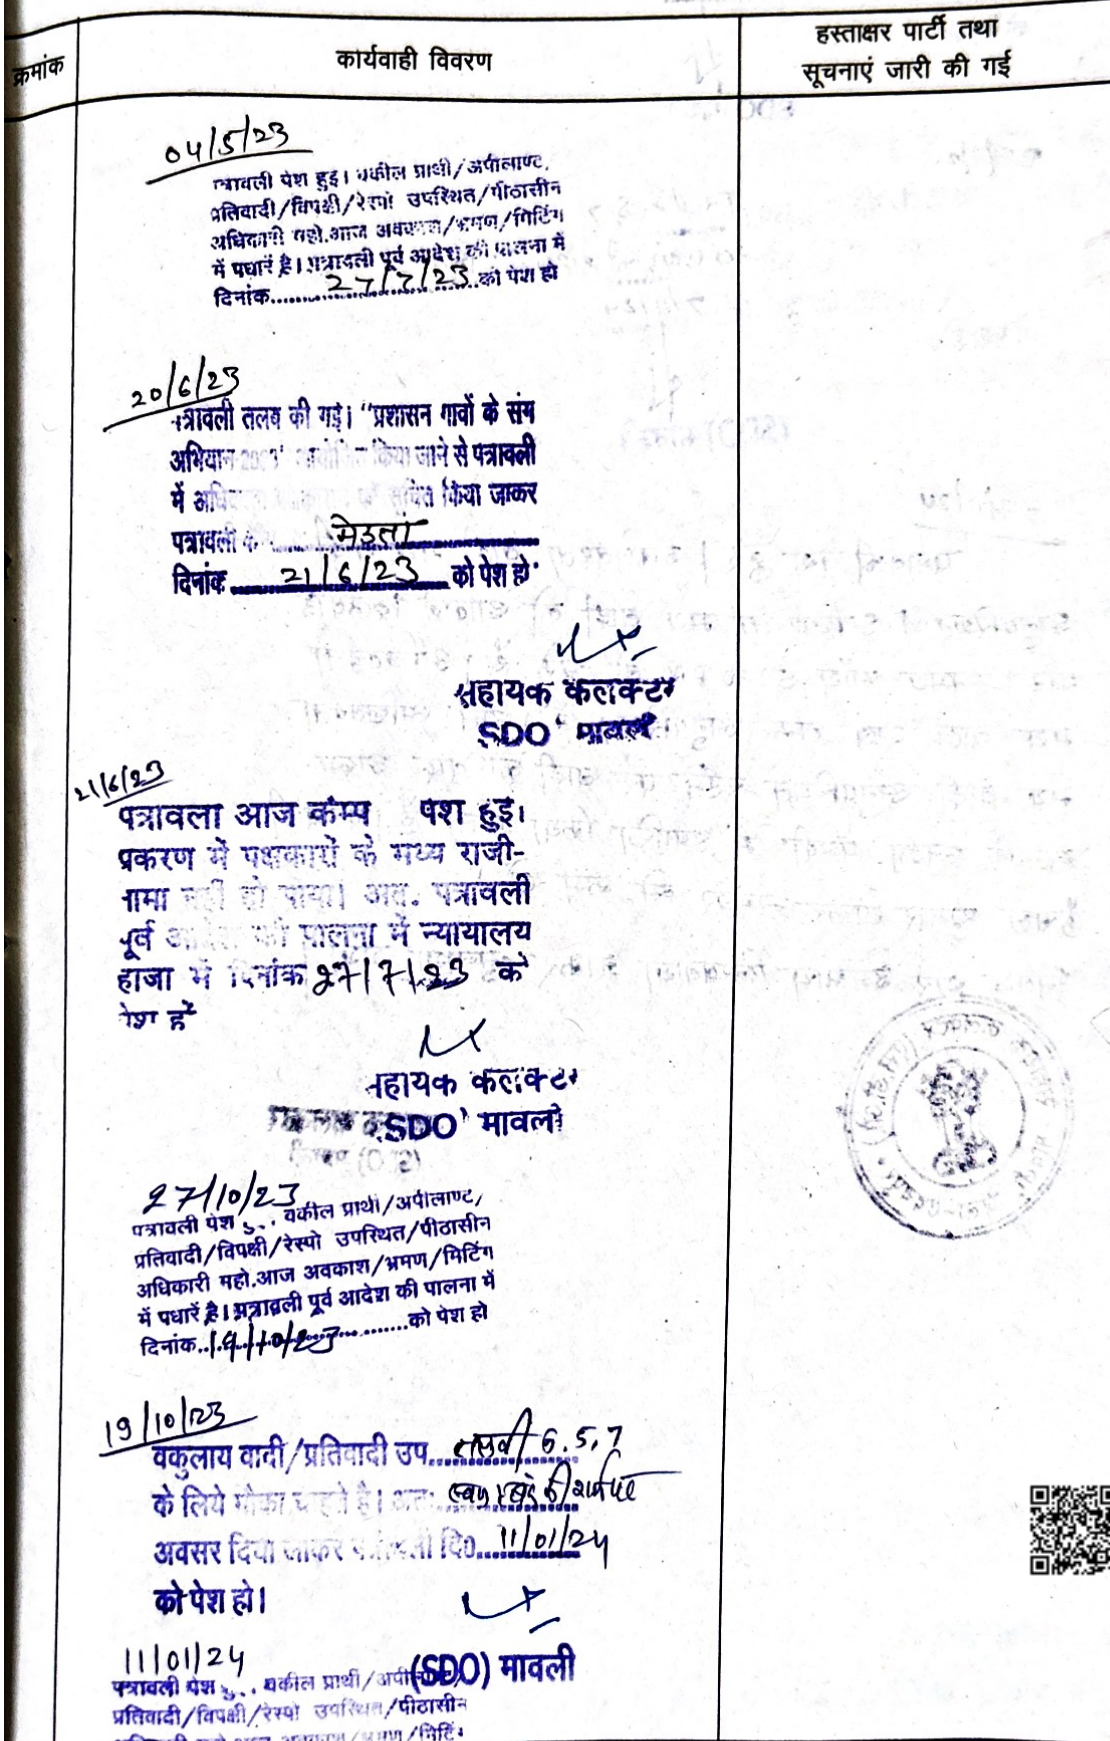 क्रमांक
कार्यवाही विवरण
हस्ताक्षर पार्टी तथा
सूचनाएं जारी की गई
04/5/23
पत्रावली पेश हुई। वकील प्रार्थी/अपीलाण्ट,
प्रतिवादी/विपक्षी/रेस्पो उपस्थित/पीठासीन
अधिकारी महो.आज अवकाश/भ्रमण/मिटिंग
में पधारें है। पत्रावली पूर्व आदेश की पालना में
दिनांक.....27/7/23.....को पेश हो
20/6/23
पत्रावली तलब की गई। "प्रशासन गावों के संग
अभियान 2023" आयोजित किया जाने से पत्रावली
में सूचित किया जाकर
पत्रावली
दिनांक 21/6/23 को पेश हो
सहायक कलक्टर
SDO' मावली
21/6/23
पत्रावली आज कैम्प पेश हुई।
प्रकरण में पक्षकारों के मध्य राजी-
नामा नहीं हो पाया। अतः पत्रावली
पूर्व आदेश की पालना में न्यायालय
हाजा में दिनांक 27/7/23 को
पेश हो
सहायक कलक्टर
SDO' मावली
27/10/23
पत्रावली पेश वकील प्रार्थी/अपीलाण्ट,
प्रतिवादी/विपक्षी/रेस्पो उपस्थित/पीठासीन
अधिकारी महो.आज अवकाश/भ्रमण/मिटिंग
में पधारें है। पत्रावली पूर्व आदेश की पालना में
दिनांक..19/10/23........को पेश हो
19/10/23
वकुलाय वादी/प्रतिवादी उप.... 6.5.7
के लिये मौका चाहते है। अतः
अवसर दिया जाकर पत्रावली दि0....11/01/24
को पेश हो।
(SDO) मावली
11/01/24
पत्रावली पेश वकील प्रार्थी/अपीलाण्ट
प्रतिवादी/विपक्षी/रेस्पो उपस्थित/पीठासीन
/भ्रमण/मिटिंग